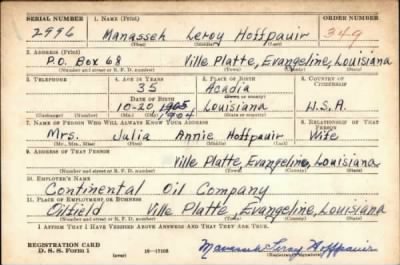 SERIAL NUMBER 1. NAME (Print) ORDER NUMBER
2996 Manasseh Leroy Hoffpauir 349
(First) (Middle) (Last)
2. ADDRESS (Print)
P.O. Box 68 Ville Platte, Evangeline, Louisiana
(Number and street or R. F. D. number) (Town) (County) (State)
3. TELEPHONE 4. AGE IN YEARS 5. PLACE OF BIRTH 6. COUNTRY OF CITIZENSHIP
35 Acadia
DATE OF BIRTH (Town or county)
10-20 1905 Louisiana U.S.A.
1904
(Mo.) (Day) (Yr.) (State or country)
7. NAME OF PERSON WHO WILL ALWAYS KNOW YOUR ADDRESS 8. RELATIONSHIP OF THAT PERSON
Mrs. Julia Annie Hoffpauir Wife
(Mr., Mrs., Miss) (First) (Middle) (Last)
9. ADDRESS OF THAT PERSON
Ville Platte, Evangeline, Louisiana
(Number and street or R. F. D. number) (Town) (County) (State)
10. EMPLOYER'S NAME
Continental Oil Company
11. PLACE OF EMPLOYMENT OR BUSINESS
Oilfield Ville Platte, Evangeline, Louisiana
(Number and street or R. F. D. number) (Town) (County) (State)
I AFFIRM THAT I HAVE VERIFIED ABOVE ANSWERS AND THAT THEY ARE TRUE.
REGISTRATION CARD
D. S. S. Form 1 (over) 16-17105 Manasseh Leroy Hoffpauir
(Registrant's signature)